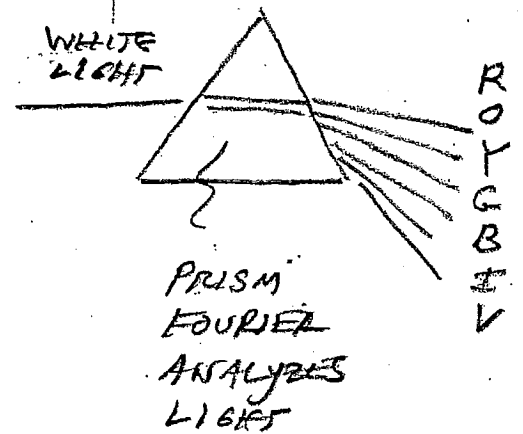 WHITE
LIGHT
R
O
Y
G
B
I
V
PRISM
FOURIER
ANALYZES
LIGHT